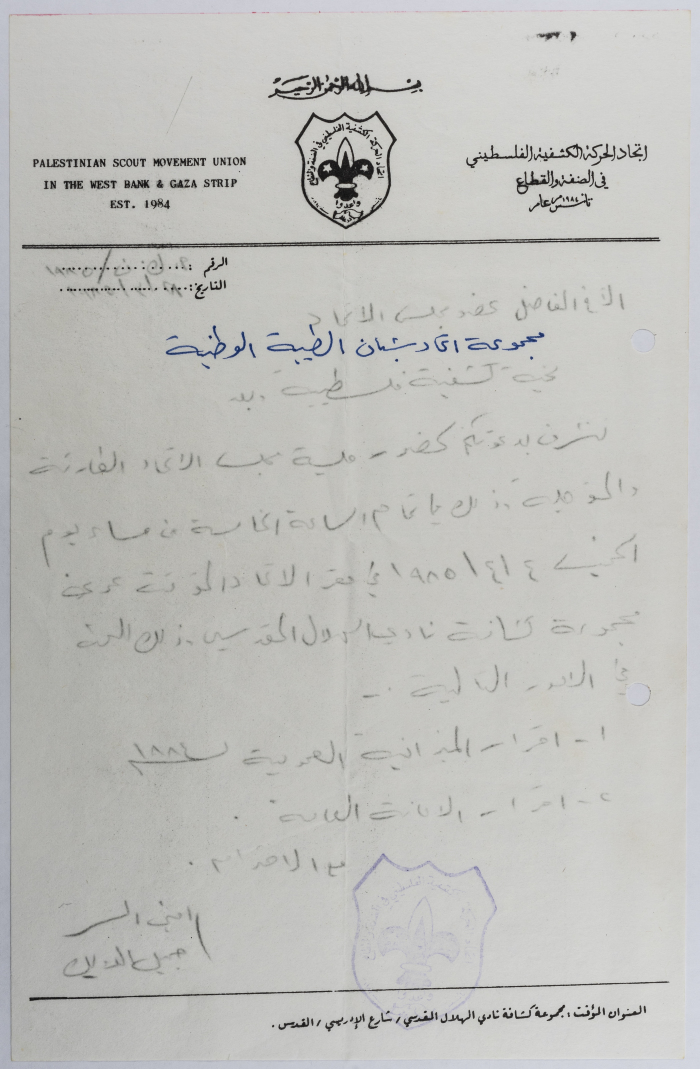 بسم الله الرحمن الرحيم
PALESTINIAN SCOUT MOVEMENT UNION
IN THE WEST BANK & GAZA STRIP
EST. 1984
اتحاد الحركة الكشفية الفلسطيني
في الضفة والقطاع
تأسس عام ١٩٨٤م
الرقم :
التاريخ:
الأخ الفاضل عضو مجلس الاتحاد
مجموعة اتحاد شبان الطيبة الوطنية
تحية كشفية فلسطينية وبعد
نتشرف بدعوتكم لحضور جلسة مجلس الاتحاد الطارئة
والمؤجلة وذلك في تمام الساعة الخامسة من مساء يوم
الخميس ٤/٤/١٩٨٥ في مقر الاتحاد المؤقت
مجموعة كشافة نادي الهلال المقدسي وذلك للبحث
في الامور التالية :-
١- اقرار الميزانية العمومية
٢- اقرار الامانة العامة .
مع الاحترام .
امين السر
العنوان المؤقت : مجموعة كشافة نادي الهلال القدسي / شارع الإدريسي / القدس .